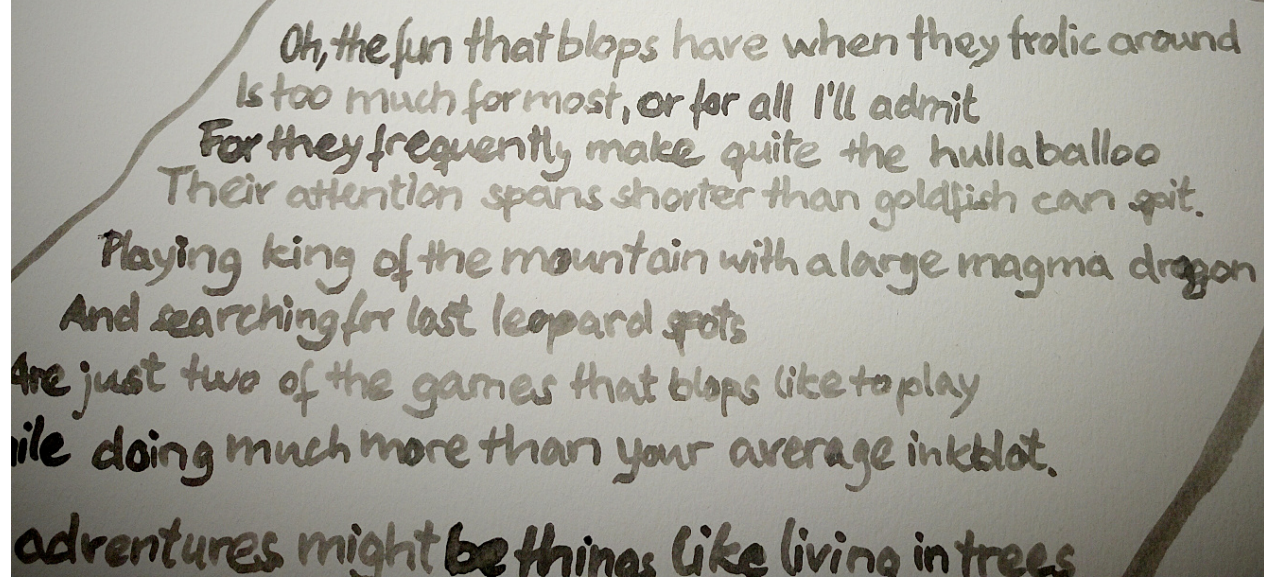 Oh, the fun that blops have when they frolic around
Is too much for most, or for all I'll admit
For they frequently make quite the hullaballoo
Their attention spans shorter than goldfish can spit.
Playing king of the mountain with a large magma dragon
And searching for lost leopard spots
Are just two of the games that blops like to play
ile doing much more than your average inkblot.
adventures might be things like living in trees